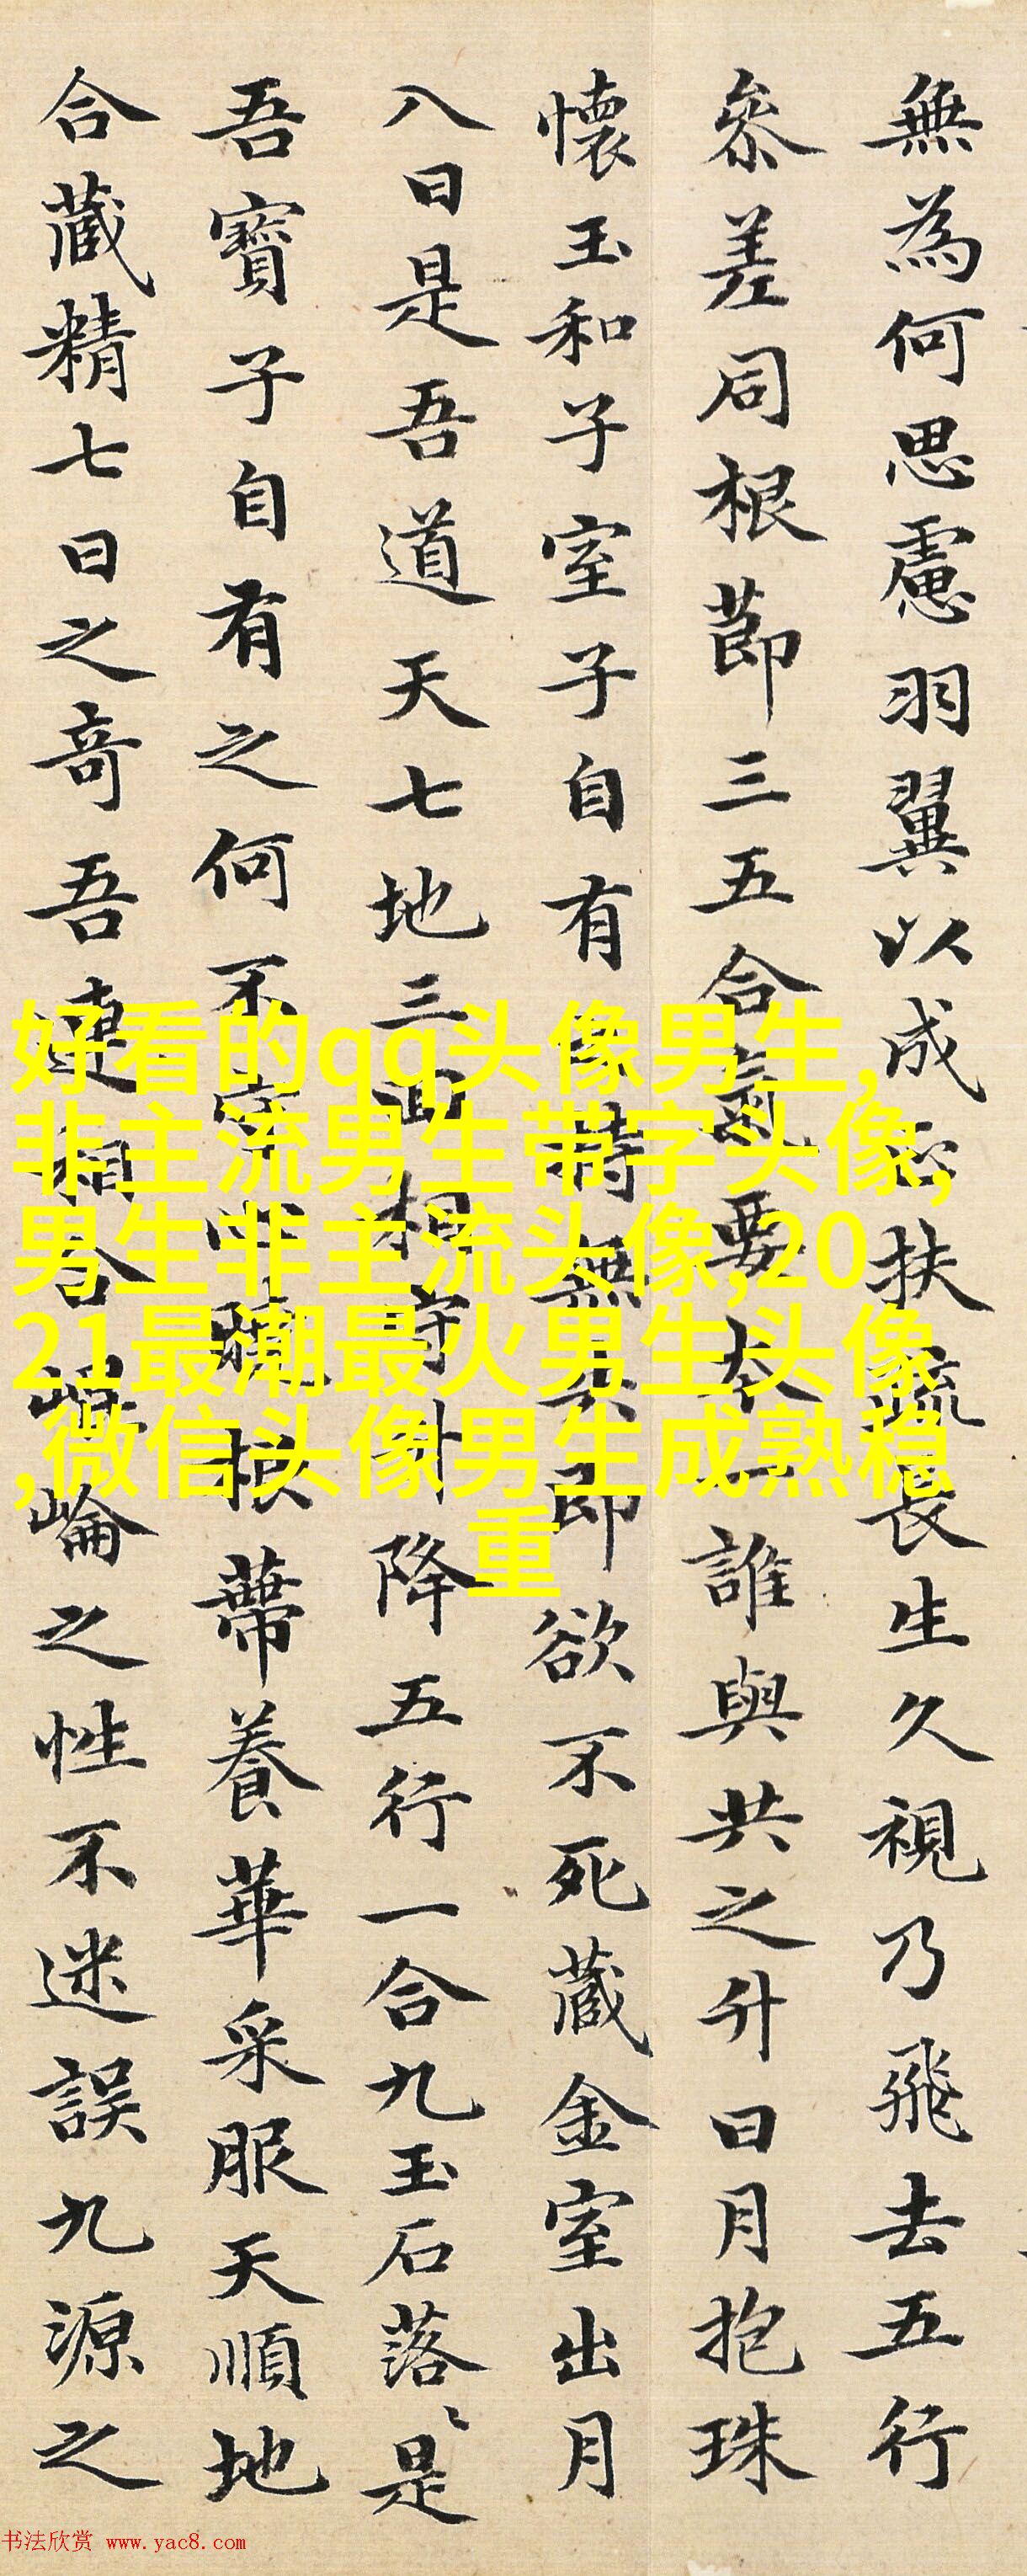 無為何思慮羽翼以成正扶疏長生久視乃飛去五行
參差同根節三五合氣要本一誰與共之升日月抱珠
懷玉和子室子自有持無失即欲不死藏金室出月
八日是吾道天七地三迴相守升降五行一合九玉石落〻是
吾寶子自有之何不守心曉根蔕養華采服天順地
合藏精七日之奇吾連相合崐崘之性不迷誤九源之
好看的qq头像男生,
非主流男生带字头像,
男生非主流头像,20
21最潮最火男生头像
,微信头像男生成熟稳
重
书法欣赏 www.yac8.com